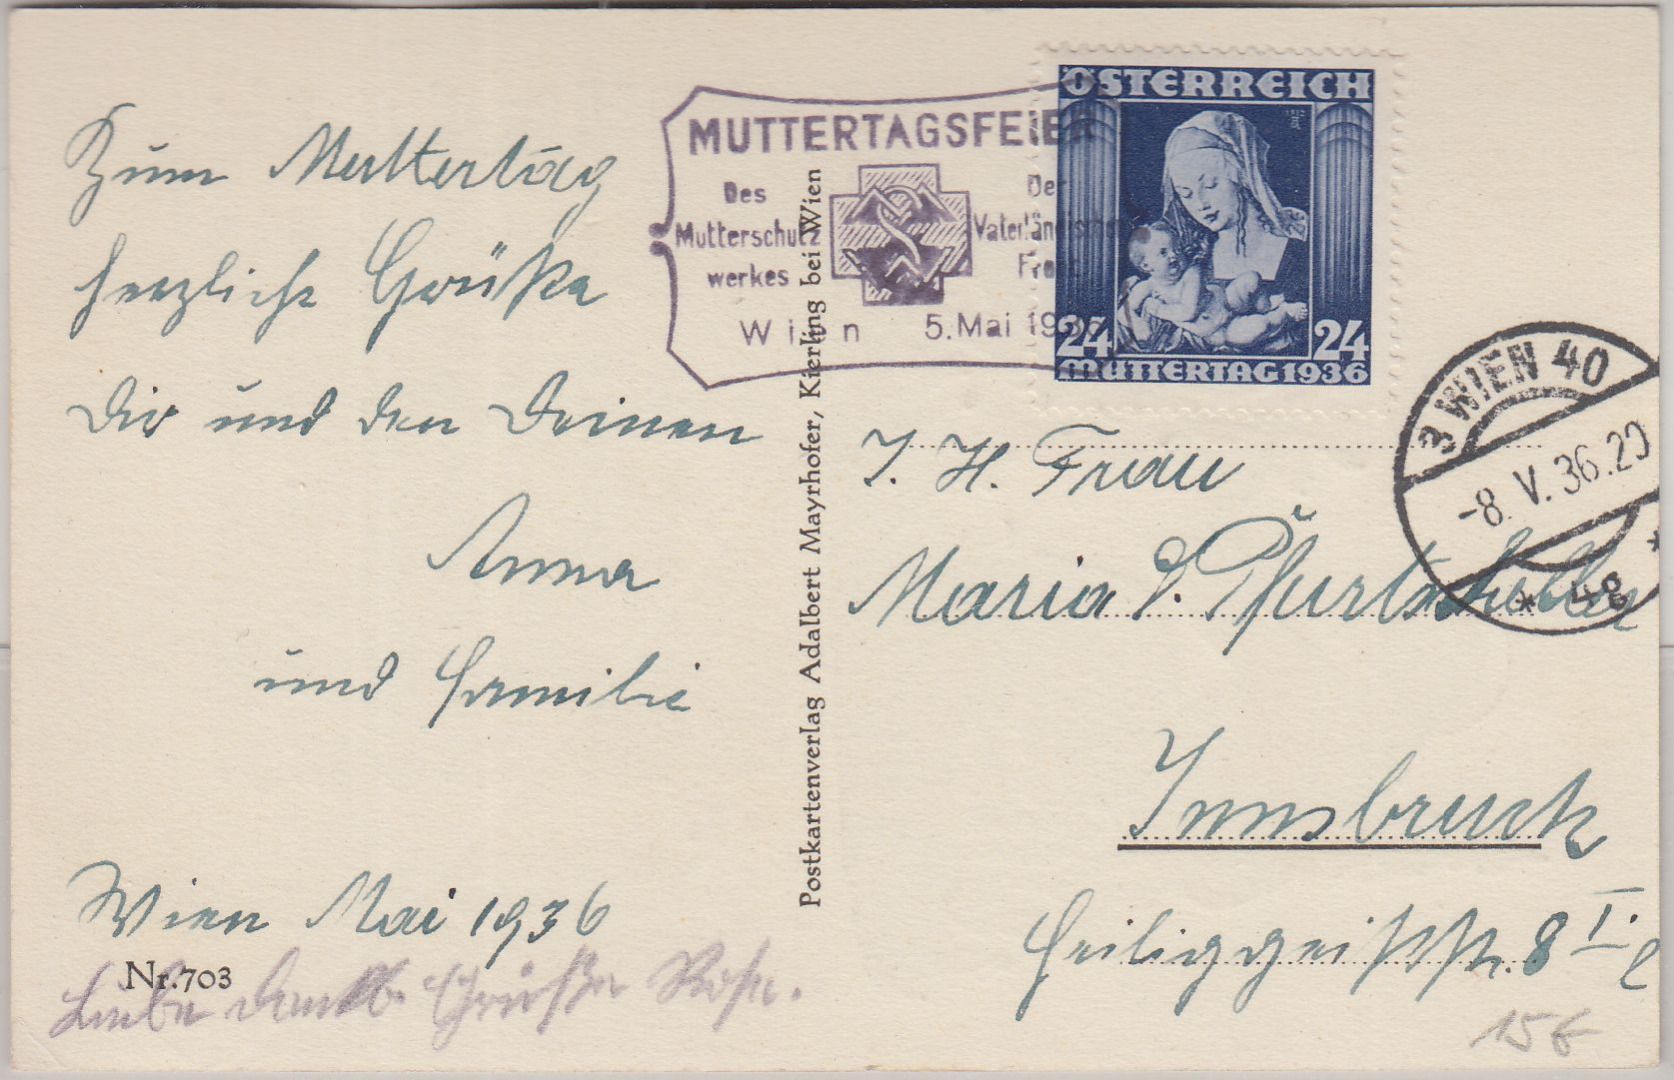 Zum Muttertag
herzliche Grüße
Dir und den Deinen
Anna
und Familie
Wien Mai 1936
Nr. 703
Liebe Grüße
Postkartenverlag Adalbert Mayrhofer, Kierling bei Wien
MUTTERTAGSFEIER
Des
Mutterschutz
werkes
Der
Vaterländischen
Front
Wien 5. Mai 1936
ÖSTERREICH
24 24
MUTTERTAG 1936
3 WIEN 40
-8. V. 36. 20
* 4g *
I. H. Frau
Maria
Innsbruck
Heiliggeiststr. 8 I.
15€